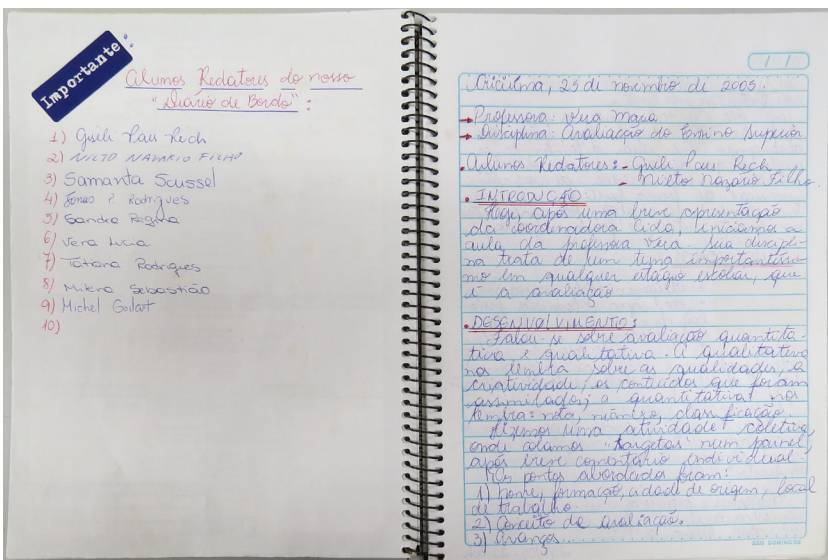 Importante:
Alunos Redatores do nosso
"Diário de Bordo":
1) Gueli Paes Rech
2) NILTO NAZARIO FILHO
3) Samanta Scussel
4) Jonas P Rodrigues
5) Sandra Regina
6) Vera Lucia
7) Tatiana Rodrigues
8) Milena Sebastião
9) Michel Godart
10)
/ /
Criciúma, 25 de novembro de 2005.
Professora: Vera Maria
Disciplina: Avaliação do Ensino Superior
Alunos Redatores: - Gueli Paes Rech
- Nilto Nazario Filho.
INTRODUÇÃO:
Hoje, após uma breve apresentação
da coordenadora Lida, iniciamos a
aula da professora Vera. Sua discipli-
na trata de um tema importantíssi-
mo em qualquer estágio escolar, que
é a avaliação.
DESENVOLVIMENTO:
Falou-se sobre avaliação quantita-
tiva e qualitativa. A qualitativa
nos lembra sobre as qualidades, a
criatividade, os conteúdos que foram
assimilados; a quantitativa nos
lembra: nota, número, classificação.
Fizemos uma atividade coletiva,
onde colamos "targetas" num painel,
após breve comentário individual.
Os pontos abordados foram:
1) Nome, formação, cidade de origem, local
de trabalho.
2) Conceito de avaliação.
3) Avanços
SÃO DOMINGOS